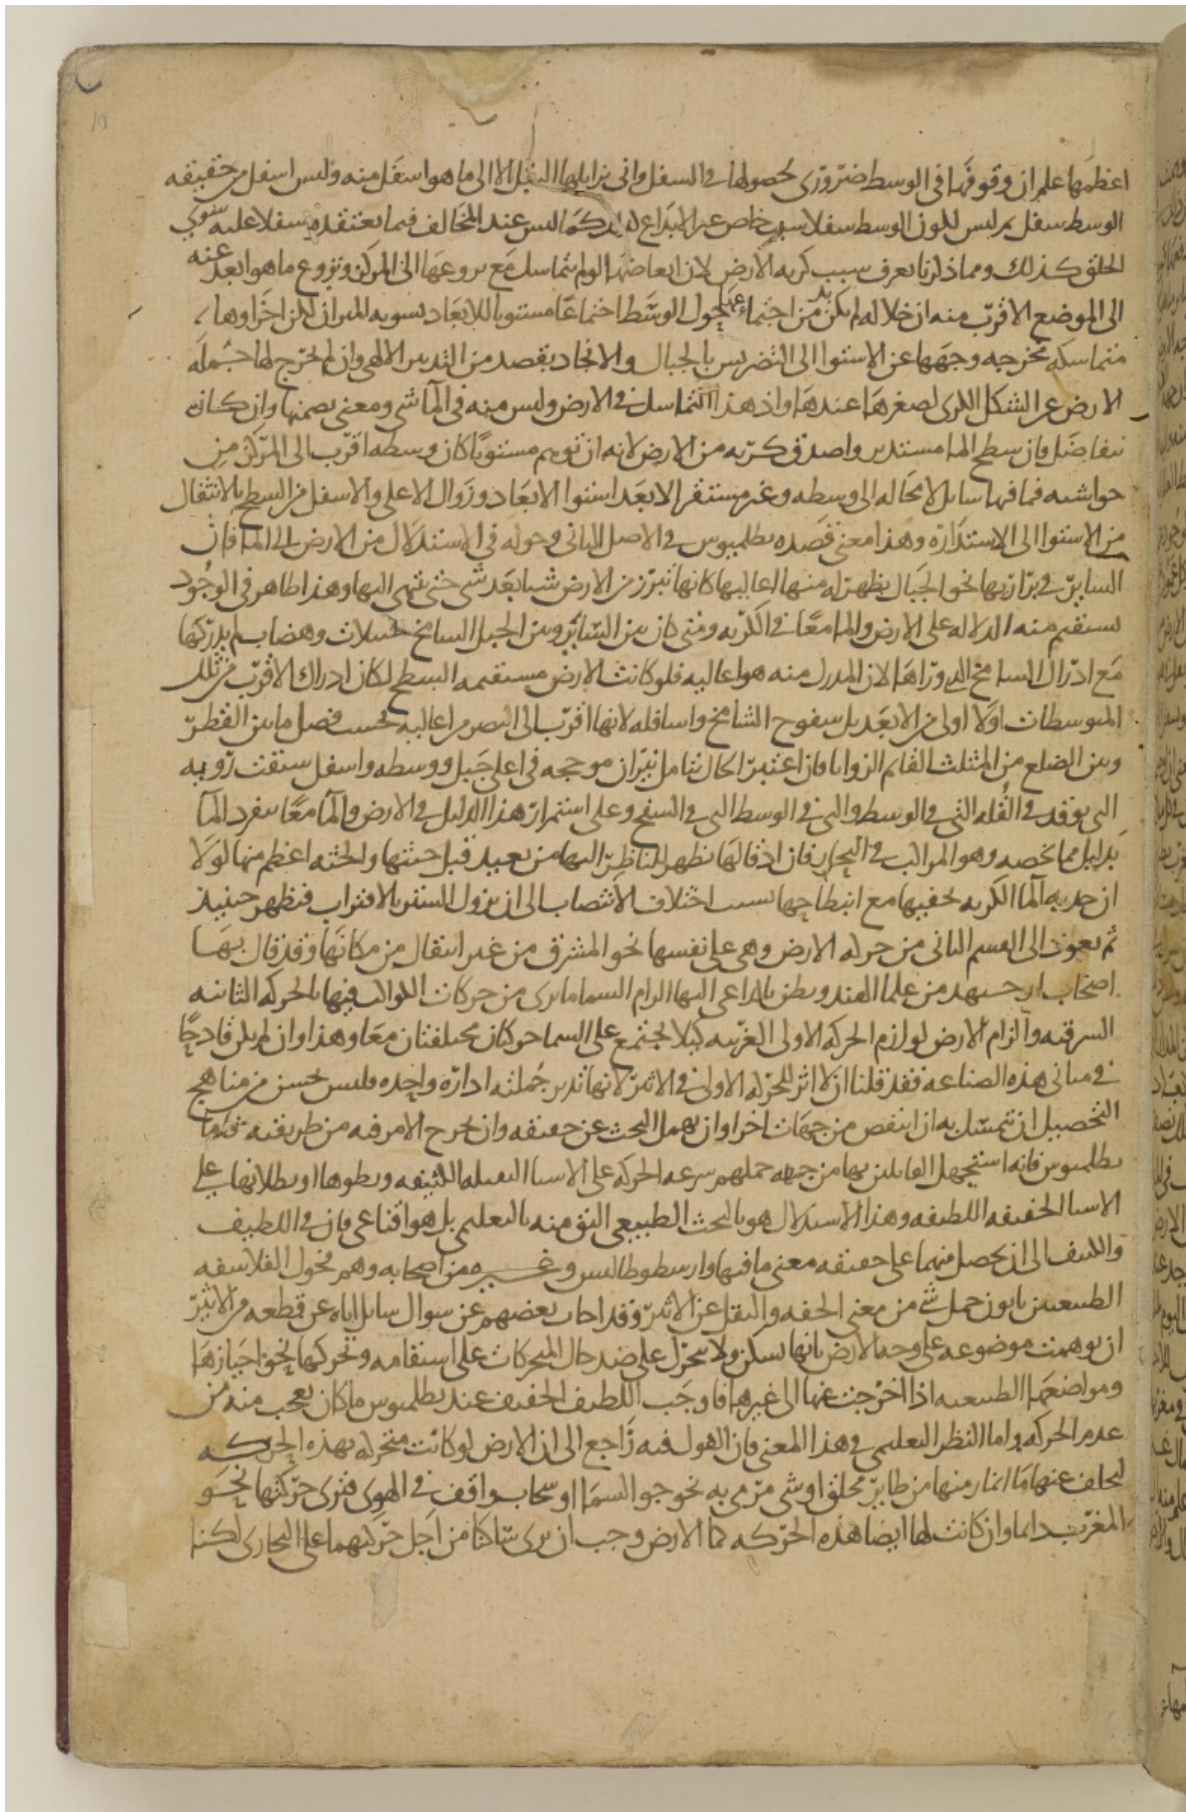 اعظمها علم ان وقوفها في الوسط ضروري لحصولها في السفل واني يزايلها الثقل الا الى ما هو اسفل منه وليس اسفل من حقيقه
الوسط سفل ثم ليس لكون الوسط سفلا سبب خاص غير الابداع كما ليس عند المخالف فيما يعتقده سفلا علة سوي
الخلق كذلك ومما ذكرنا يعرف سبب كريه الارض لان ابعاضها لو لم تتماسك مع نزوعها الى المركز ونزوع ما هو ابعد عنه
الى الموضع الاقرب منه ان خلا له لم يكن بد من اجتماعها حول الوسط اجتماعا مستويا للابعاد تسويه الميزان لكن اجزاوها
متماسكه تخرجه وجهها عن الاستوا الى التضريس بالجبال والانجاد بقصد من التدبير الالهي وان لم تخرج لها جمله
الارض عن الشكل الكري لصغرها عندها واذ هذا التماسك في الارض وليس منه في الما شي ومعنى يضمنها وان كان
يتفاضل فان سطح الما مستدير واصدق كريه من الارض لانه ان توهم مستويا كان وسطه اقرب الى المركز من
حواشيه فما فيها سايل لا محاله الى وسطه وغير مستقر الا بعد استوا الابعاد وزوال الاعلى والاسفل من السطح بالانتقال
من الاستوا الى الاستداره وهذا معنى قصده بطلميوس في الاصل الثاني وحوله في الاستدلال من الارض الى الما فان
الساير في برازيها نحو الجبال يظهر له منها اعاليها كانها تبرز من الارض شيا بعد شي حتى ينتهي اليها وهذا ظاهر في الوجود
يستقيم منه الدلاله على الارض والما معا في الكريه ومتى كان بين الساير وبين الجبل الشامخ وهضاب لم يدركها
مع ادراك الشامخ الذي وراها لان المدرك منه هو اعاليه فلو كانت الارض مستقيمه السطح لكان ادراك الاقرب من تلك
المتوسطات اولا اولى من الابعد بل سفوح الشامخ واسافله لانها اقرب الى البصر من اعاليه بحسب فضل ما بين القطر
وبين الضلع من المثلث القايم الزوايا فان اعتبر الحال بتامل نيران موججه في اعلى جبل ووسطه واسفل سبقت رويه
التي توقد في القله التي في الوسط والتي في الوسط التي في السفح وعلى استمرار هذا الدليل في الارض والما معا ينفرد الما
بدليل مما يخصه وهو المراكب في البحار فان ادقالها تظهر للناظر اليها من بعيد قبل جثتها والجثه اعظم منها لولا
ان حدبه الما الكريه تخفيها مع انبطاحها بسبب اختلاف الانتصاب الى ان يزول الستر بالاقتراب فتظهر حينيذ
ثم نعود الى القسم الثاني من حركه الارض وهي على نفسها نحو المشرق من غير انتقال من مكانها وقد قال بها
اصحاب ارجبهد من علما الهند ويظن بالداعي اليها الزام السما ما يرى من حركات الكواكب فيها بالحركه الثانيه
الشرقيه والزام الارض لوازم الحركه الاولى الغربيه كيلا يجتمع على السما حركتان مختلفتان معا وهذا وان لم يكن قادحا
في مباني هذه الصناعه فقد قلنا ان لا اثر للحركه الاولى في الاثير لانها تدير جملته اداره واحده فليس يحسن من مناهج
التحصيل ان نتمسك به ان انتقض من جهات اخر او ان يهمل البحث عن حقيقه وان يخرج الامر فيه من طريقته
بطلميوس فانه استجهل القايلين بها من جهه حملهم سرعه الحركه على الاشيا الثقيله الكثيفه وبطوها او بطلانها على
الاشيا الخفيفه اللطيفه وهذا الاستدلال هو بالبحث الطبيعي اليق منه بالتعليمي بل هو اقناعي فان في اللطيف
والكثيف الى ان يحصل منهما على حقيقه معنى ما فيها وارسطوطالس وغيره من اصحابه وهم فحول الفلاسفه
الطبيعيين يابون حمل شي من معنى الخفه والثقل عن الاثير وقد اجاب بعضهم عن سوال سايل اياه عن قطعه من الاثير
ان توهمت موضوعه على وجه الارض بانها تسكن ولا تتحرك على ضد حال المتحركات على استقامه وتحركها نحو احيازها
ومواضعها الطبيعيه اذا اخرجت عنها الى غيرها فاوجب اللطيف الخفيف عند بطلميوس ما كان يعجب منه من
عدم الحركه واما النظر التعليمي في هذا المعنى فان القول فيه راجع الى ان الارض لو كانت متحركه بهذه الحركه
لتخلف عنها ما انماز منها من طاير محلق او شي مرمي به نحو جو السما او سحاب واقف في الهوى فترى حركتها نحو
المغرب دايما وان كانت لها ايضا هذه الحركه كما الارض وجب ان يرى ساكنا من اجل حركتهما على التحاري لكنا